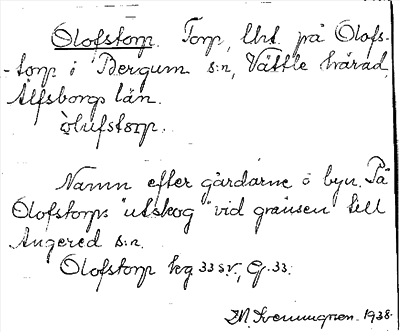 Olofstorp. Torp, Utst. på Olofs-
-torp i Bergum s:n, Vättle härad,
Älfsborgs län.
òlufstorp.
Namn efter gårdarne i byn. På
Olofstorps "utskog" vid gränsen till
Angered s:n.
Olofstorp kg 33 sv, G. 33.
1938.